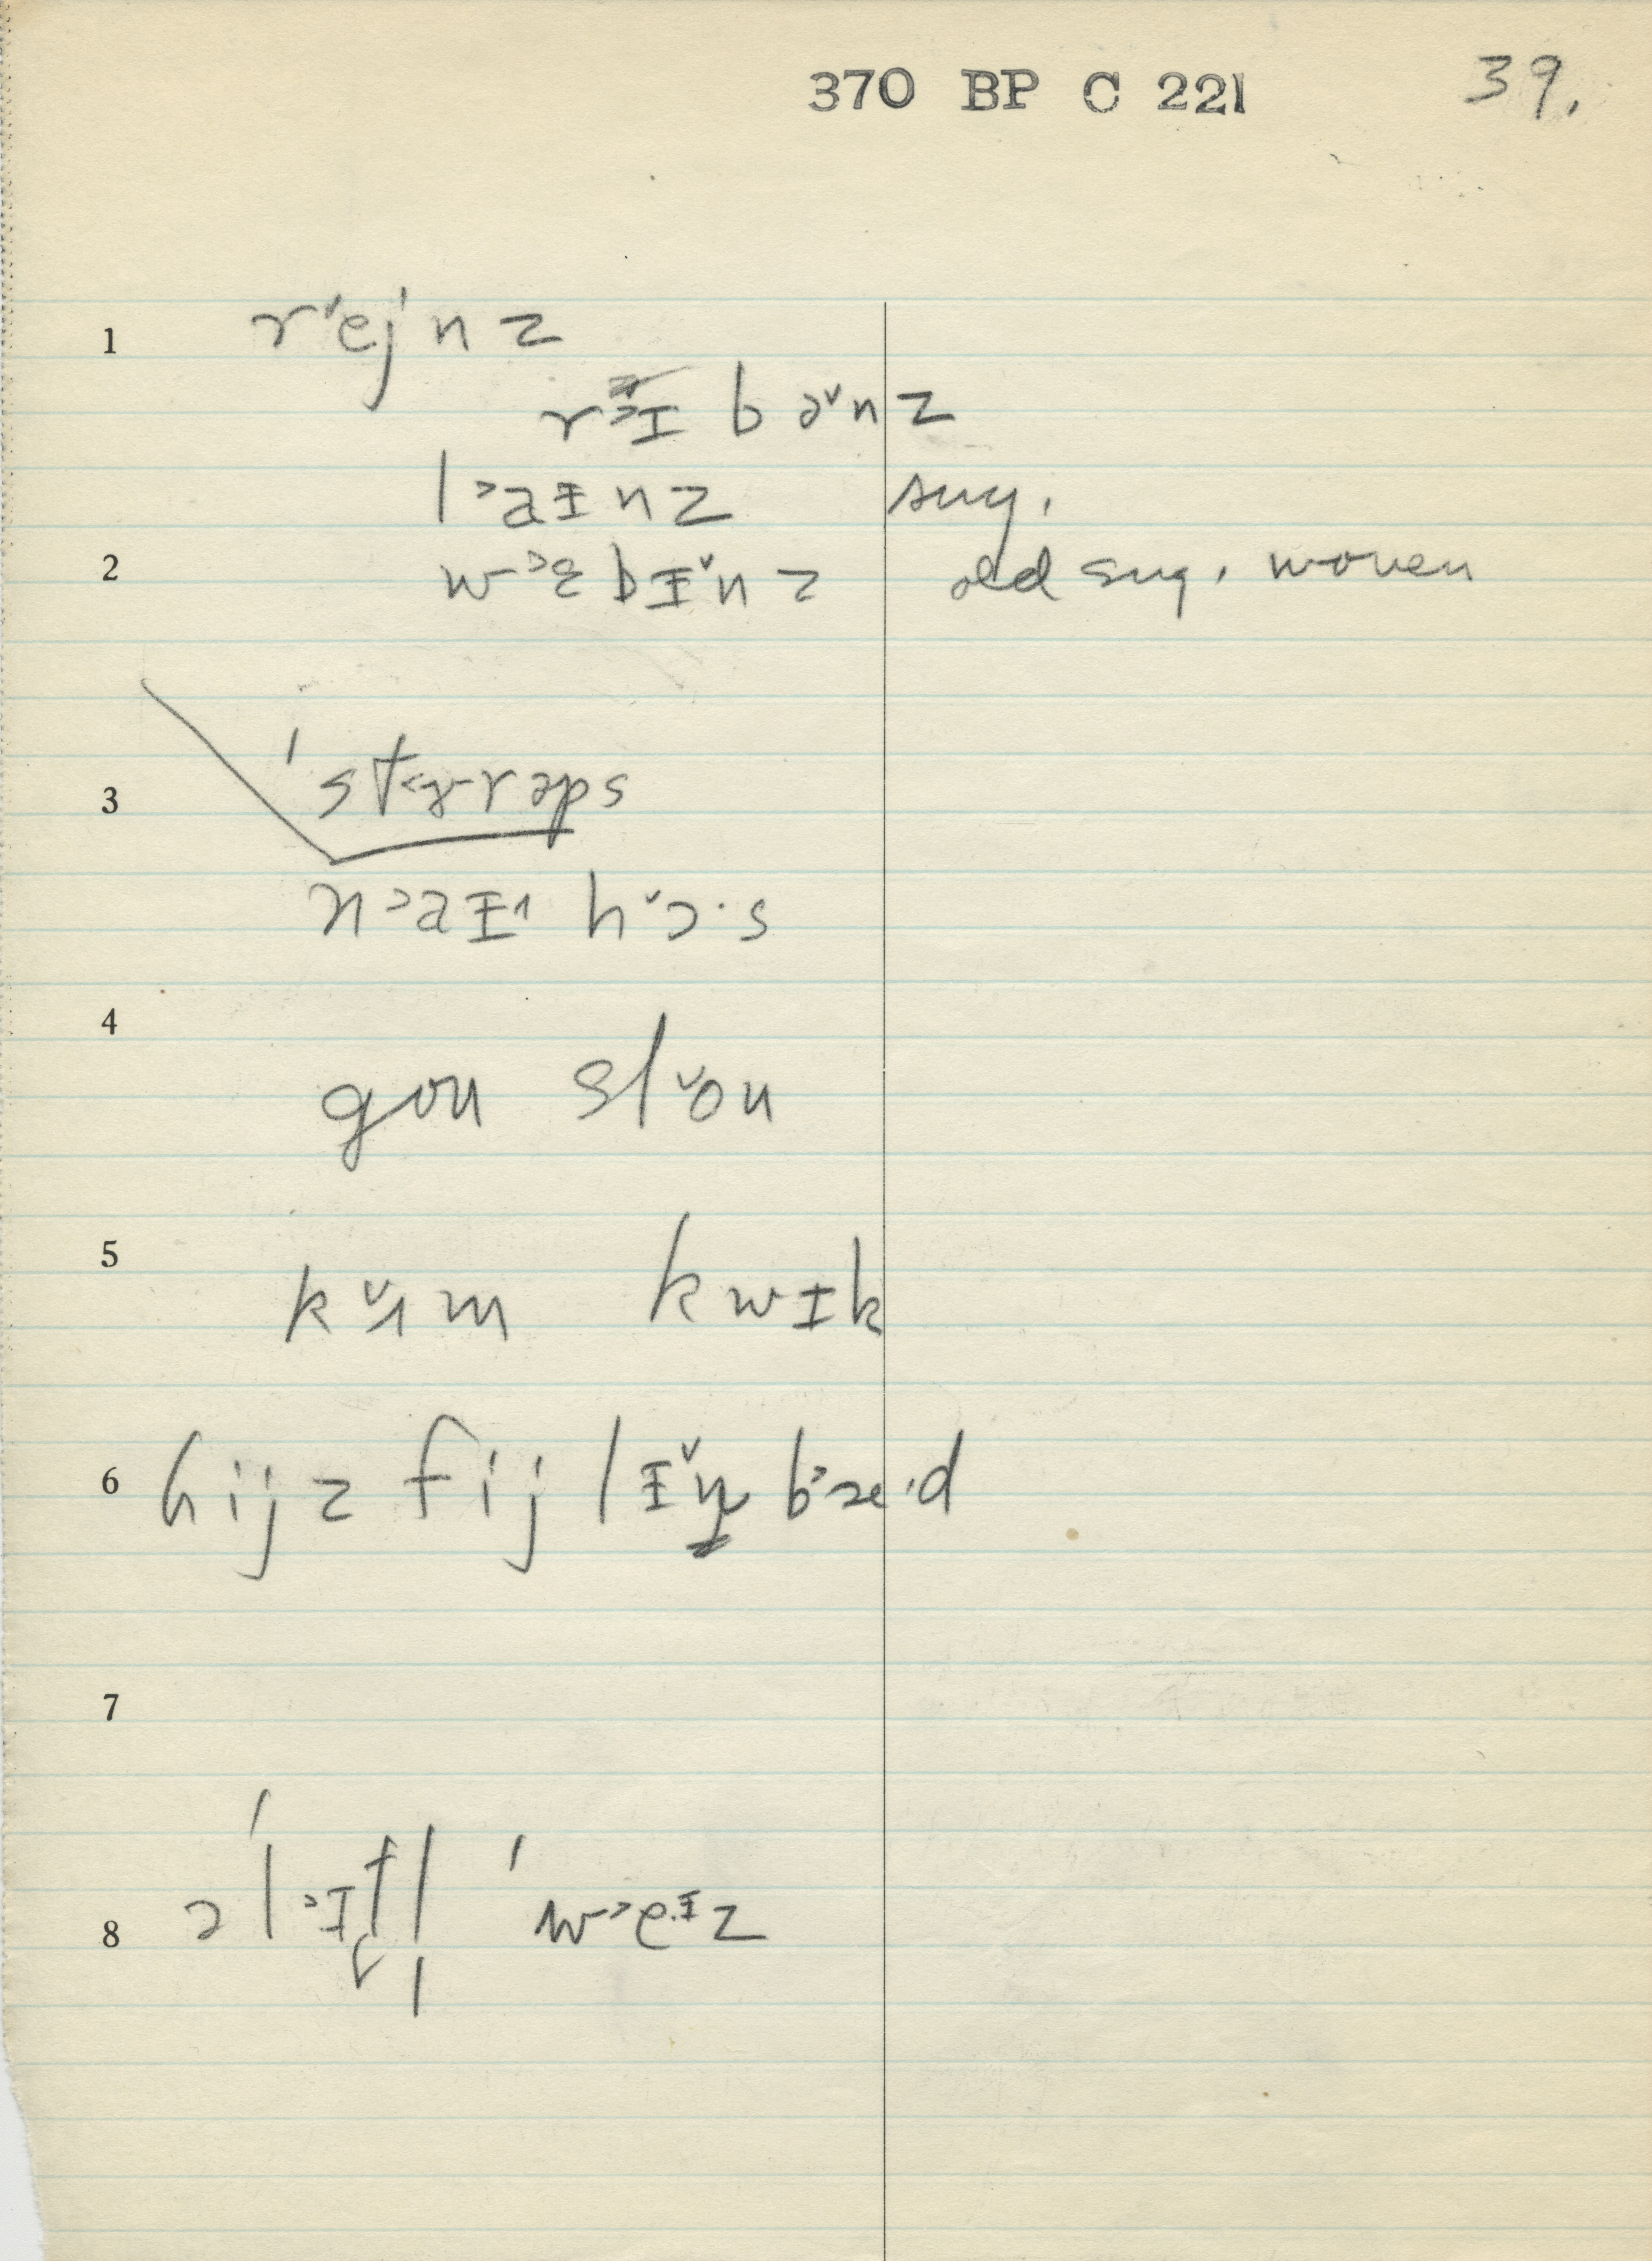 370 BP C 221 39.
1 r˅ejnz
r˃ɪbə˅nz
l˃aɪnz sug.
2 w˃ɛbɪ˅nz old sug. woven
3 ˈst˂ɚrəps
n˃aɪ˄ h˅ɔ·s
4 gou sl˅ou
5 k˅ʌm kwɪk
6 hijz fijlɪ˅ŋ b˃æ·d
7
8 əˈl˃ɪtl̩ ˈw˃e·ɪz